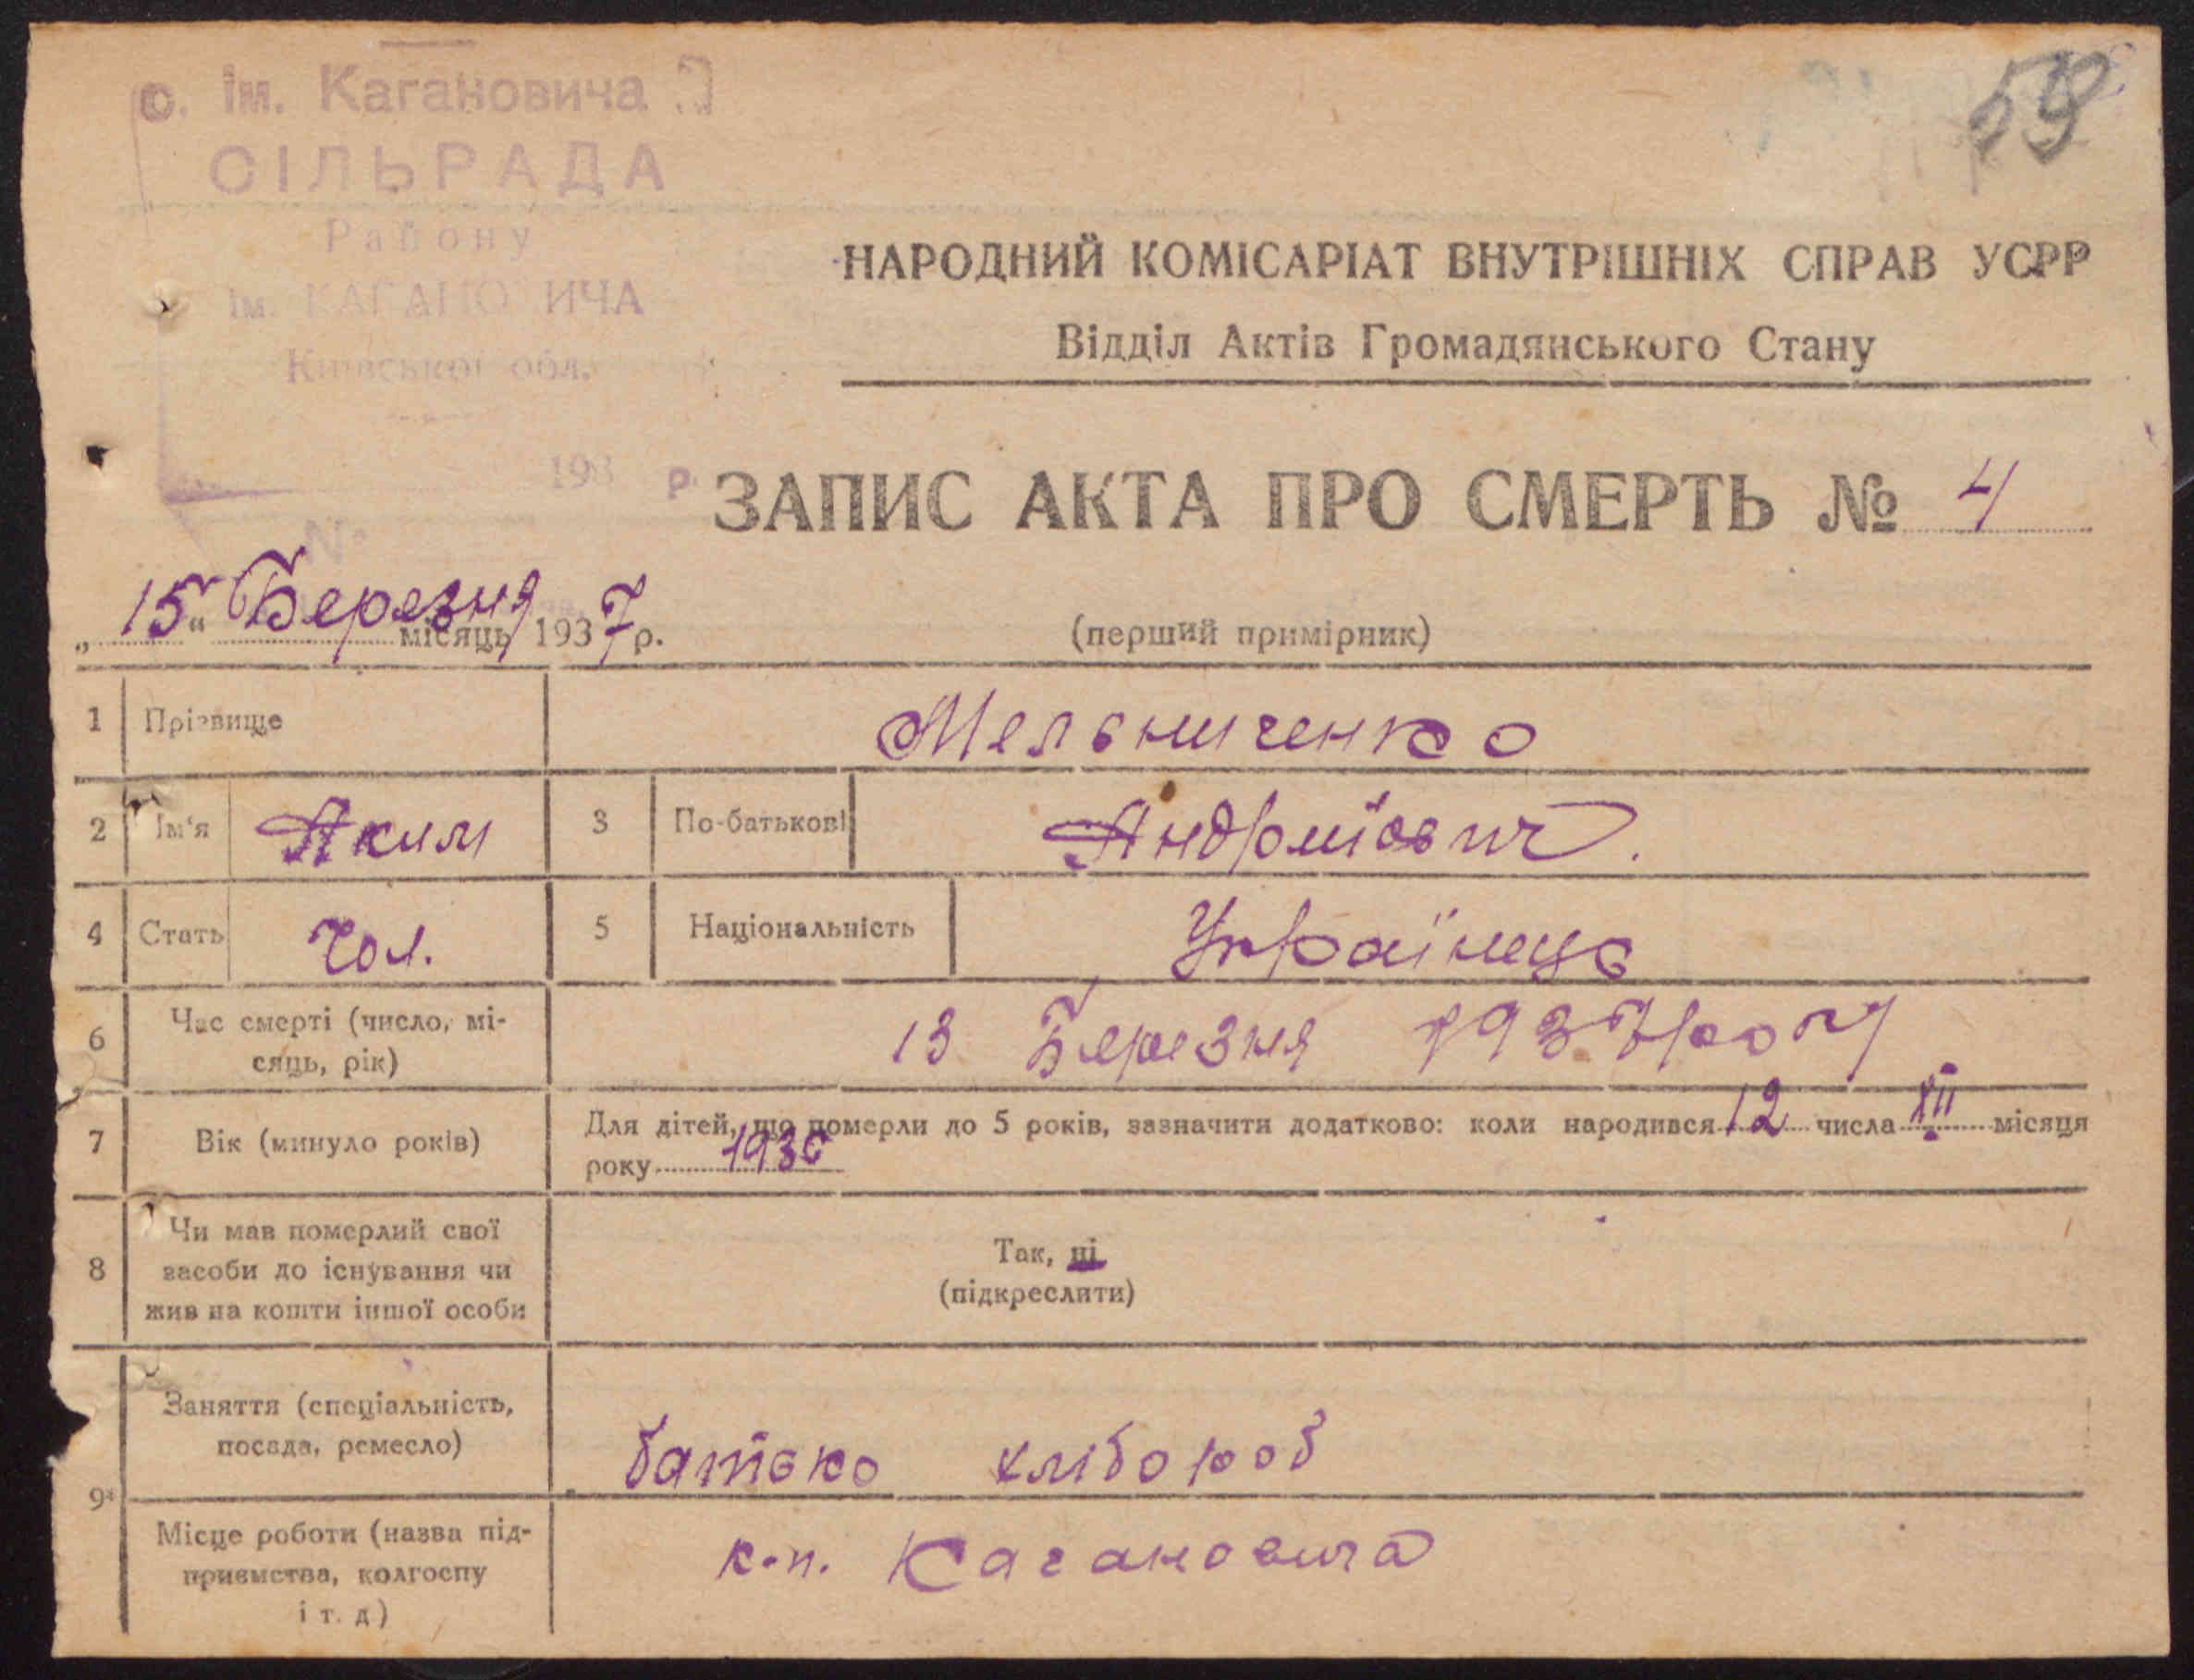 59
с. ім. Кагановича
СІЛЬРАДА
Району
ім. КАГАНОВИЧА
Київської обл.
193 р.
№
НАРОДНИЙ КОМІСАРІАТ ВНУТРІШНІХ СПРАВ УСРР
Відділ Актів Громадянського Стану
ЗАПИС АКТА ПРО СМЕРТЬ № 4
„15“ Березня місяць 1937 р.
(перший примірник)
1 Прізвище Мельниченко
2 Ім'я Яким 3 По-батькові Андрийович.
4 Стать Чол. 5 Національність Українець
6 Час смерті (число, мі-
сяць, рік) 13 Березня 1937 року
7 Вік (минуло років) Для дітей, що померли до 5 років, зазначити додатково: коли народився 12 числа XII місяця
року 1936
8 Чи мав померлий свої
засоби до існування чи
жив на кошти іншої особи
Так, ні
(підкреслити)
9 Заняття (спеціальність,
посада, ремесло) батько хлібороб
Місце роботи (назва під-
приємства, колгоспу
і т. д) к-п. Кагановича